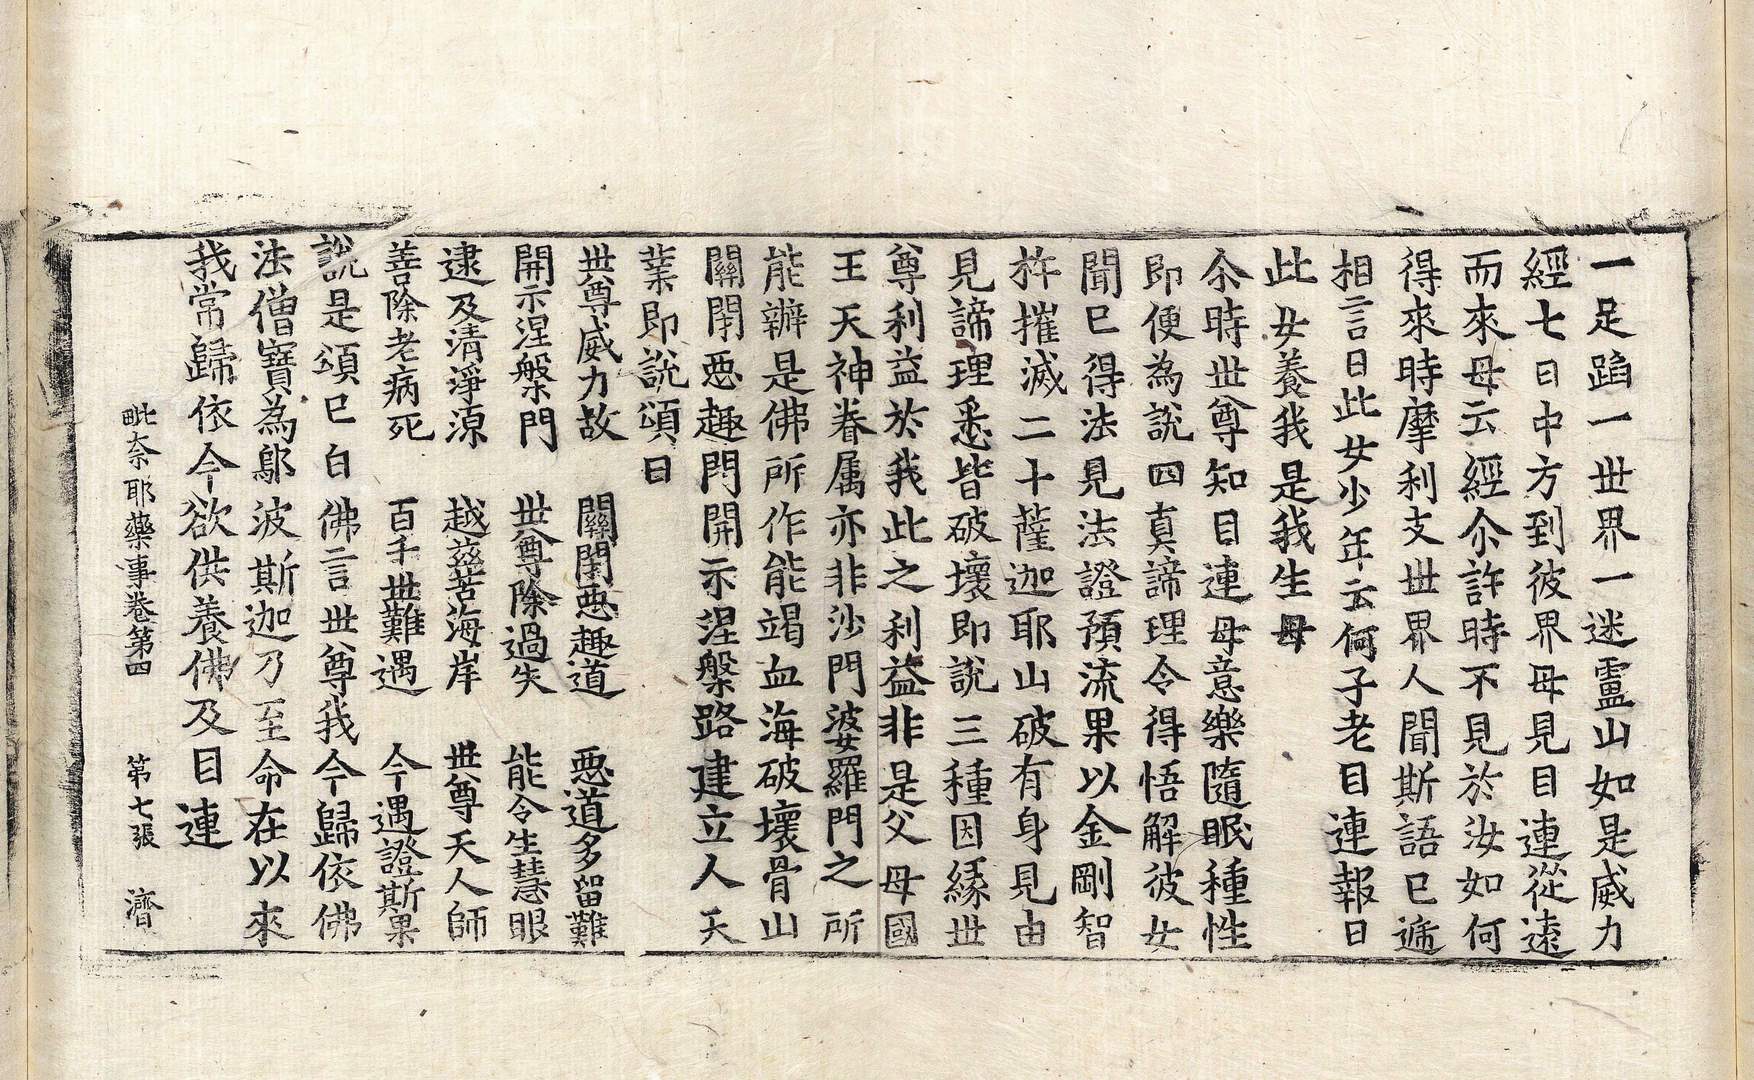 一足蹈一世界一迷盧山如是威力
經七日中方到彼界母見目連從遠
而來母云經尒許時不見於汝如何
得來時摩利支世界人聞斯語已遞
相言曰此女少年云何子老目連報曰
此女養我是我生母
尒時世尊知目連母意樂隨眠種性
即便為說四真諦理令得悟解彼女
聞已得法見法證預流果以金剛智
杵摧滅二十薩迦耶山破有身見由
見諦理悉皆破壞即說三種因緣世
尊利益於我此之利益非是父母國
王天神眷属亦非沙門婆羅門之所
能辦是佛所作能竭血海破壞骨山
關閉惡趣門開示涅槃路建立人天
業即說頌曰
世尊威力故 關閉惡趣道 惡道多留難
開示涅槃門 世尊除過失 能令生慧眼
逮及清淨源 越茲苦海岸 世尊天人師
善除老病死 百千世難遇 今遇證斯果
說是頌已白佛言世尊我今歸依佛
法僧寶為鄔波斯迦乃至命在以來
我常歸依今欲供養佛及目連
毗奈耶藥事卷第四 第七張 濟